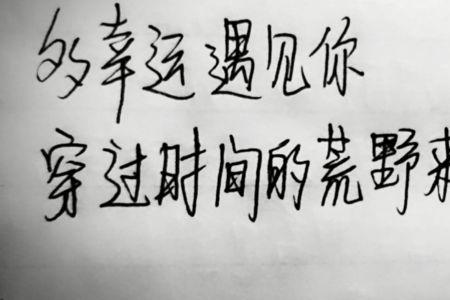 多幸运遇见你
穿过时间的荒野来